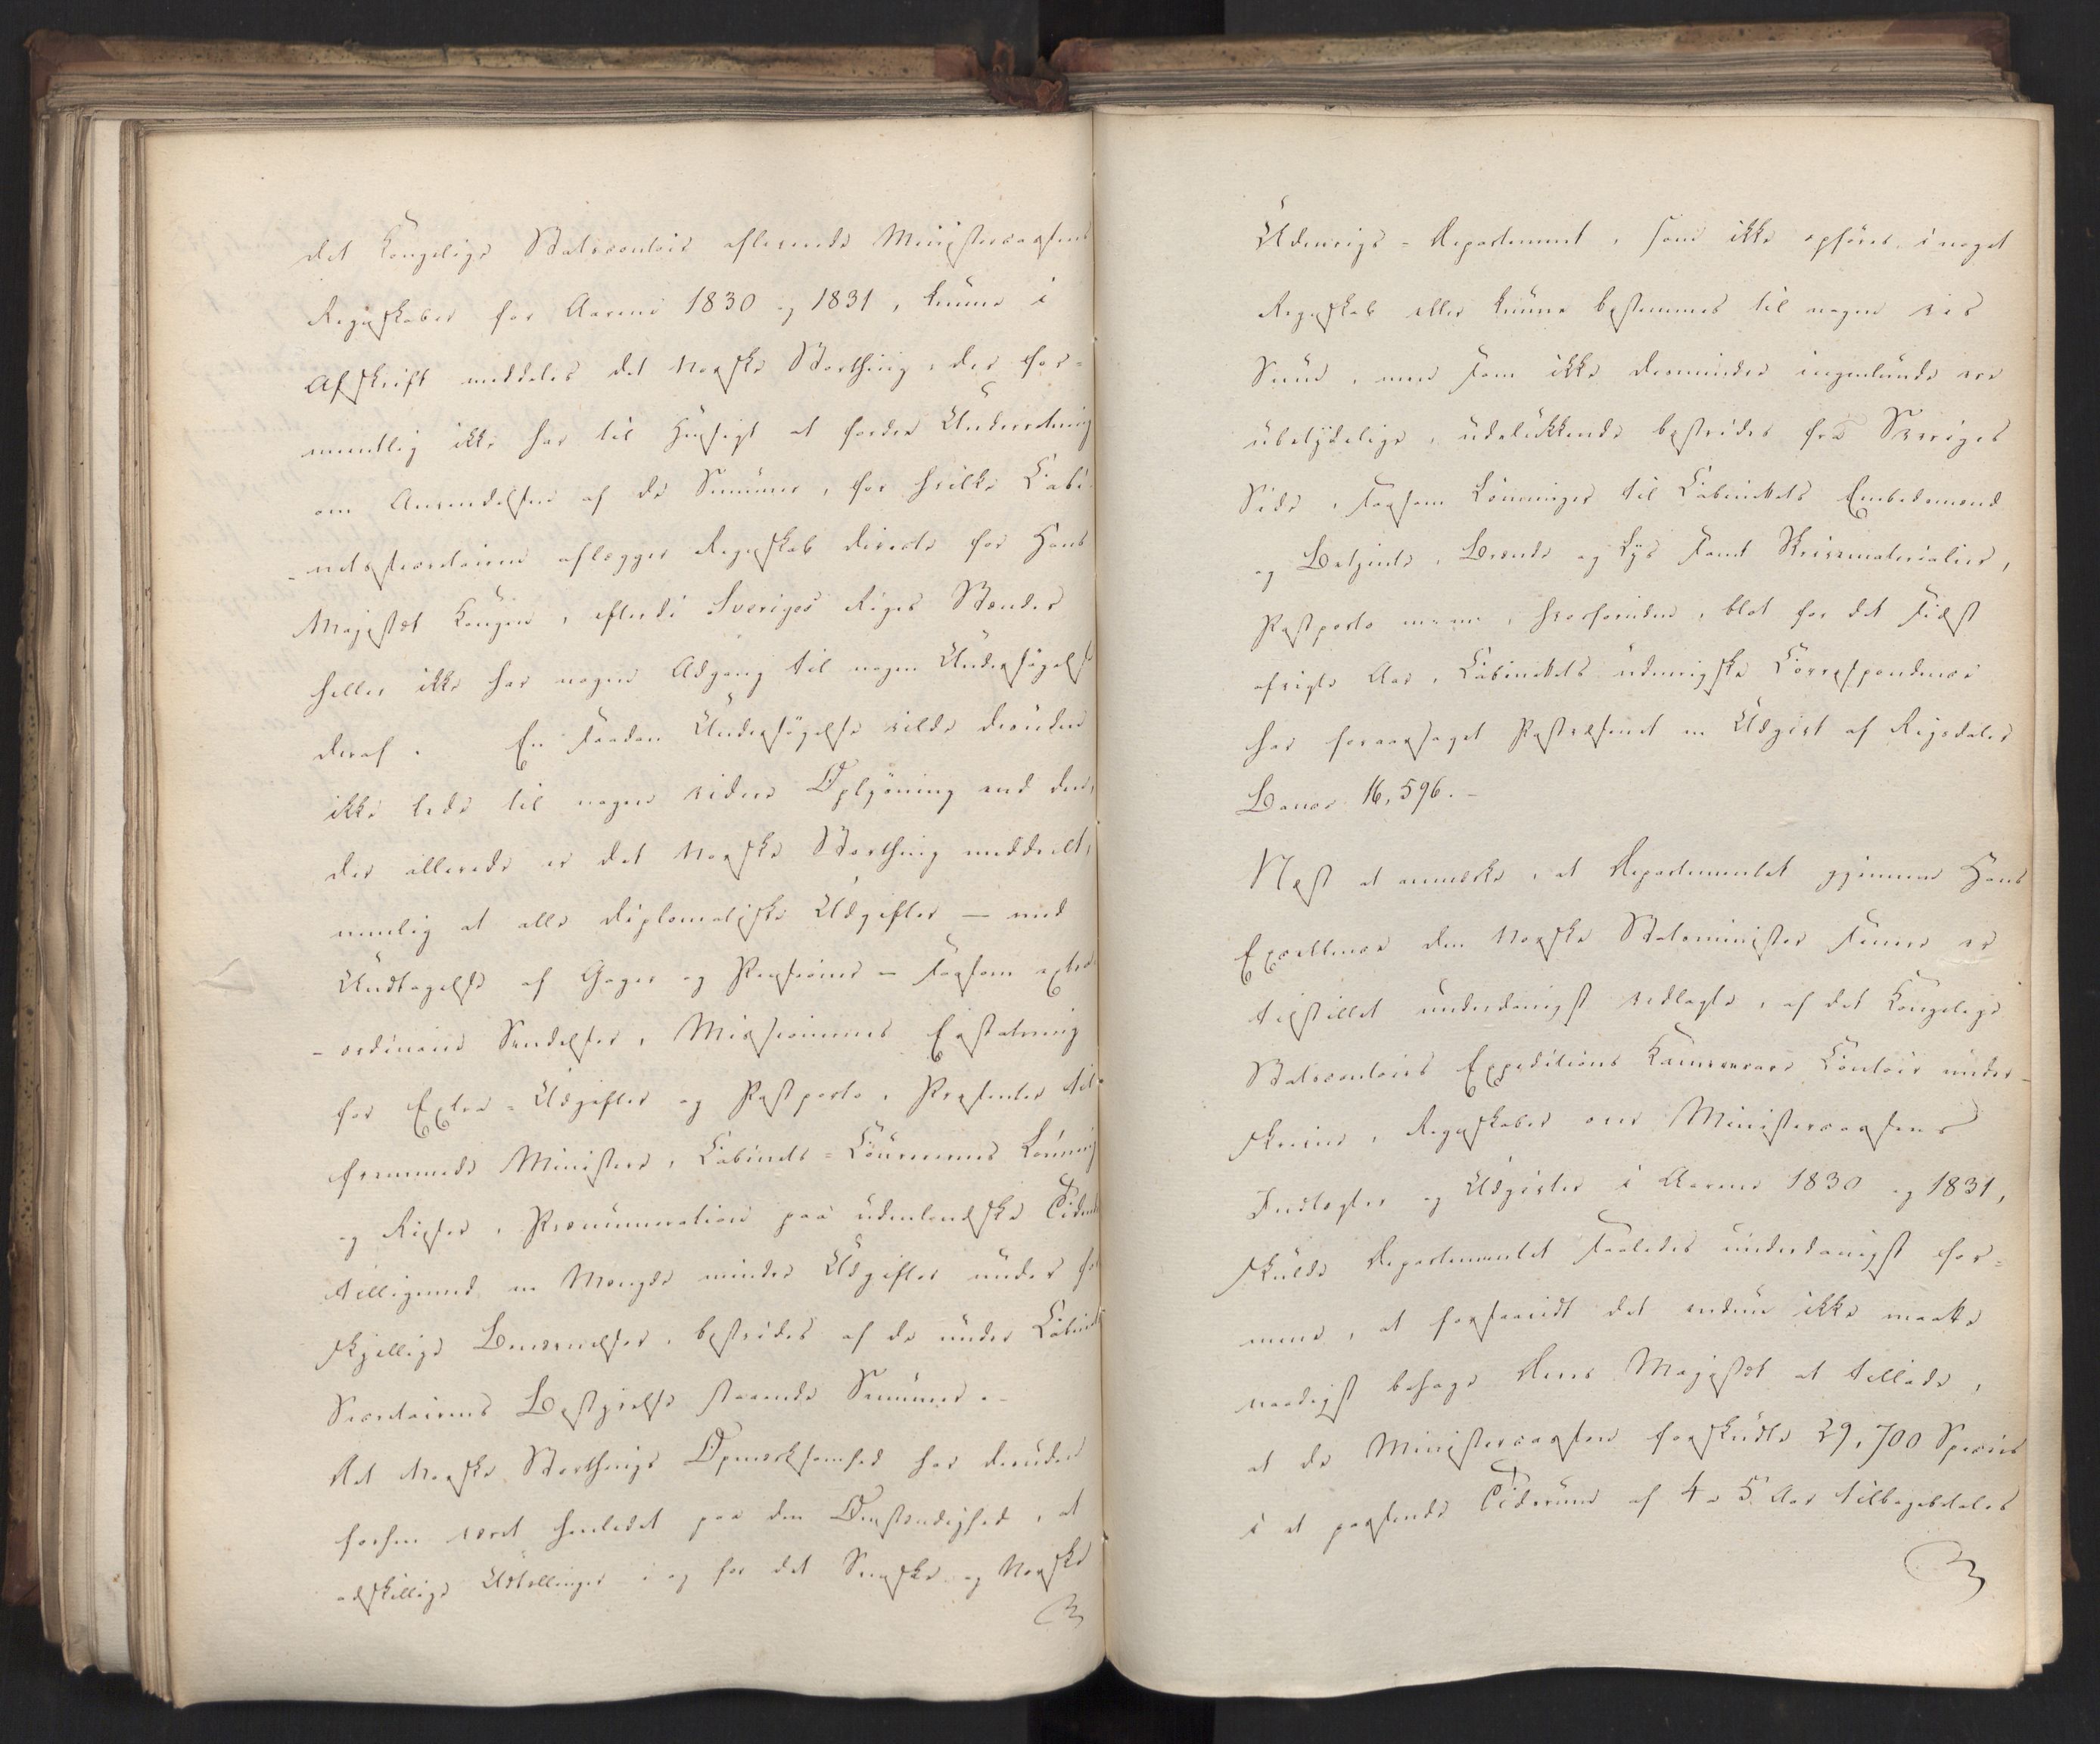 det Kongelige Statscontoir aflevende Ministercassens
Regnskaber for Aarene 1830 og 1831, kunne i
Afskrift meddeles det Norske Storthing, der for-
mentlig ikke har til Hensigt at fordre Underretning
om Anvendelsen af de Summer, for hvilke Cabi-
netssecretairen aflægger Regnskab directe for Hans
Majestæt Kongen, efterdi Sveriges Riges Stænder
heller ikke har nogen Adgang til nogen Undersøgelse
deraf. En saadan Undersøgelse vilde desuden
ikke lede til nogen videre Oplysning end den,
der allerede er det Norske Storthing meddeelt,
nemlig at alle diplomatiske Udgifter — med
Undtagelse af Gager og Pensioner — saasom extra-
-ordinaire Sendelser, Missionernes Erstatning
for Extra-Udgifter og Postporto, Presenter til
fremmede Ministre, Cabinets-Courrerernes Lønning
og Reiser, Prænumeration paa udenlandske Tidende
tilligemed en Mængde mindre Udgifter under for
skjellige Benævnelser, bestrides af de under Cabinets
Secretairens Bestyrelse staaende Summer.-
Det Norske Storthings Opmærksomhed har desuden
forhen været henledet paa den Omstændighed, at
adskillige Udtællinger i og for det Svenske og Norske
Udenrigs-Departement, som ikke opføres i noget
Regnskab eller kunne bestemmes til nogen vis
Sum, men som ikke desmindre ingenlunde ere
ubetydelige, udelukkende bestrides fra Sveriges
Side, saasom Lønninger til Cabinettets Embedsmænd
og Betjente, Brænde og Lys samt Skrivematerialier,
Postporto m. m., hvorforuden, blot for det sidst
afvigte Aar, Cabinettets udenrigske Correspondence
har foraarsaget Postvæsenet en Udgivt af Rigsdaler
Banco 16,596.-
Næst at anmærke, at Departementet gjennem Hans
Excellence den Norske Statsminister senere er
tilstillet underdanigst vedlagte, af det Kongelige
Statscontoirs Expeditions Kammerers Contoir under-
skrevne, Regnskaber over Ministercassens
Indtægter og Udgivter i Aarene 1830 og 1831,
skulde Departementet saaledes underdanigst for-
mene, at forsaavidt det endnu ikke maatte
naadigst behage Deres Majestæt at tillade,
at de Ministercassen forskudte 29,700 Species
i et passende Tidsrum af 4 a 5 Aar tilbagebetales